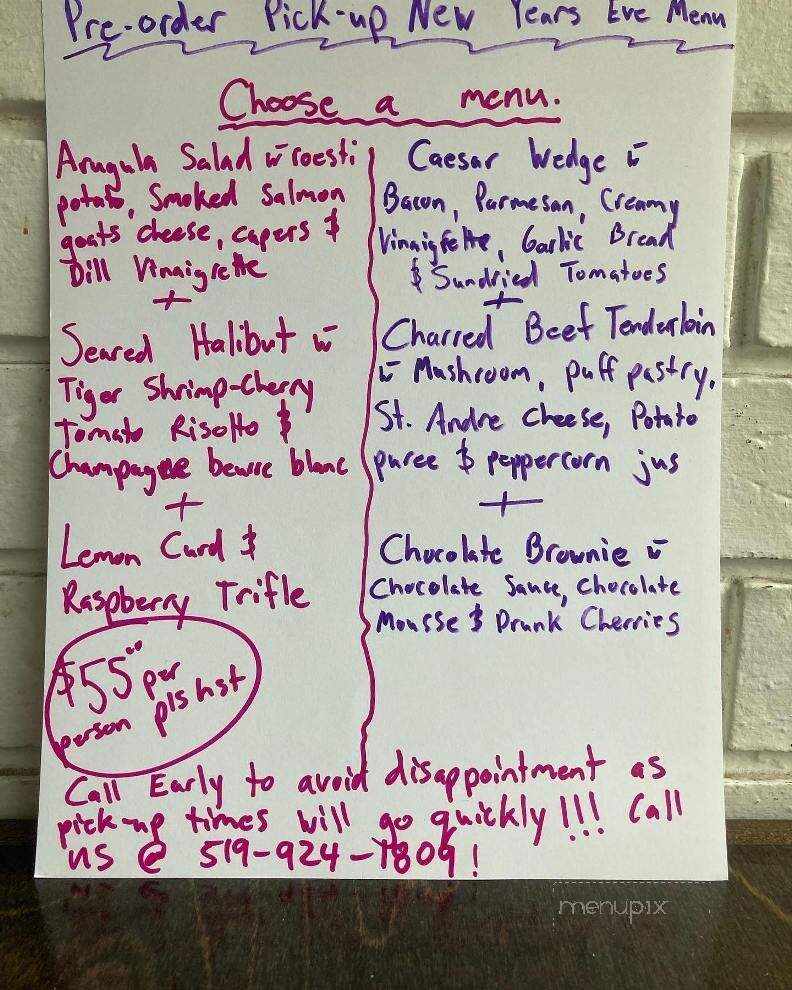 Pre-order Pick-up New Years Eve Menu
Choose a menu.
Arugula Salad w roesti
potato, Smoked Salmon
goats cheese, capers &
Dill Vinaigrette
+
Seared Halibut w
Tiger Shrimp-Cherry
Tomato Risotto &
Champagne beurre blanc
+
Lemon Curd &
Raspberry Trifle
$55.00 per
person pls hst
Caesar Wedge w
Bacon, Parmesan, Creamy
Vinaigrette, Garlic Bread
& Sundried Tomatoes
+
Charred Beef Tenderloin
w Mushroom, puff pastry,
St. Andre cheese, Potato
puree & peppercorn jus
+
Chocolate Brownie w
Chocolate Sauce, Chocolate
Mousse & Drunk Cherries
Call Early to avoid disappointment as
pick-up times will go quickly!!! Call
us @ 519-924-1809!
menupix